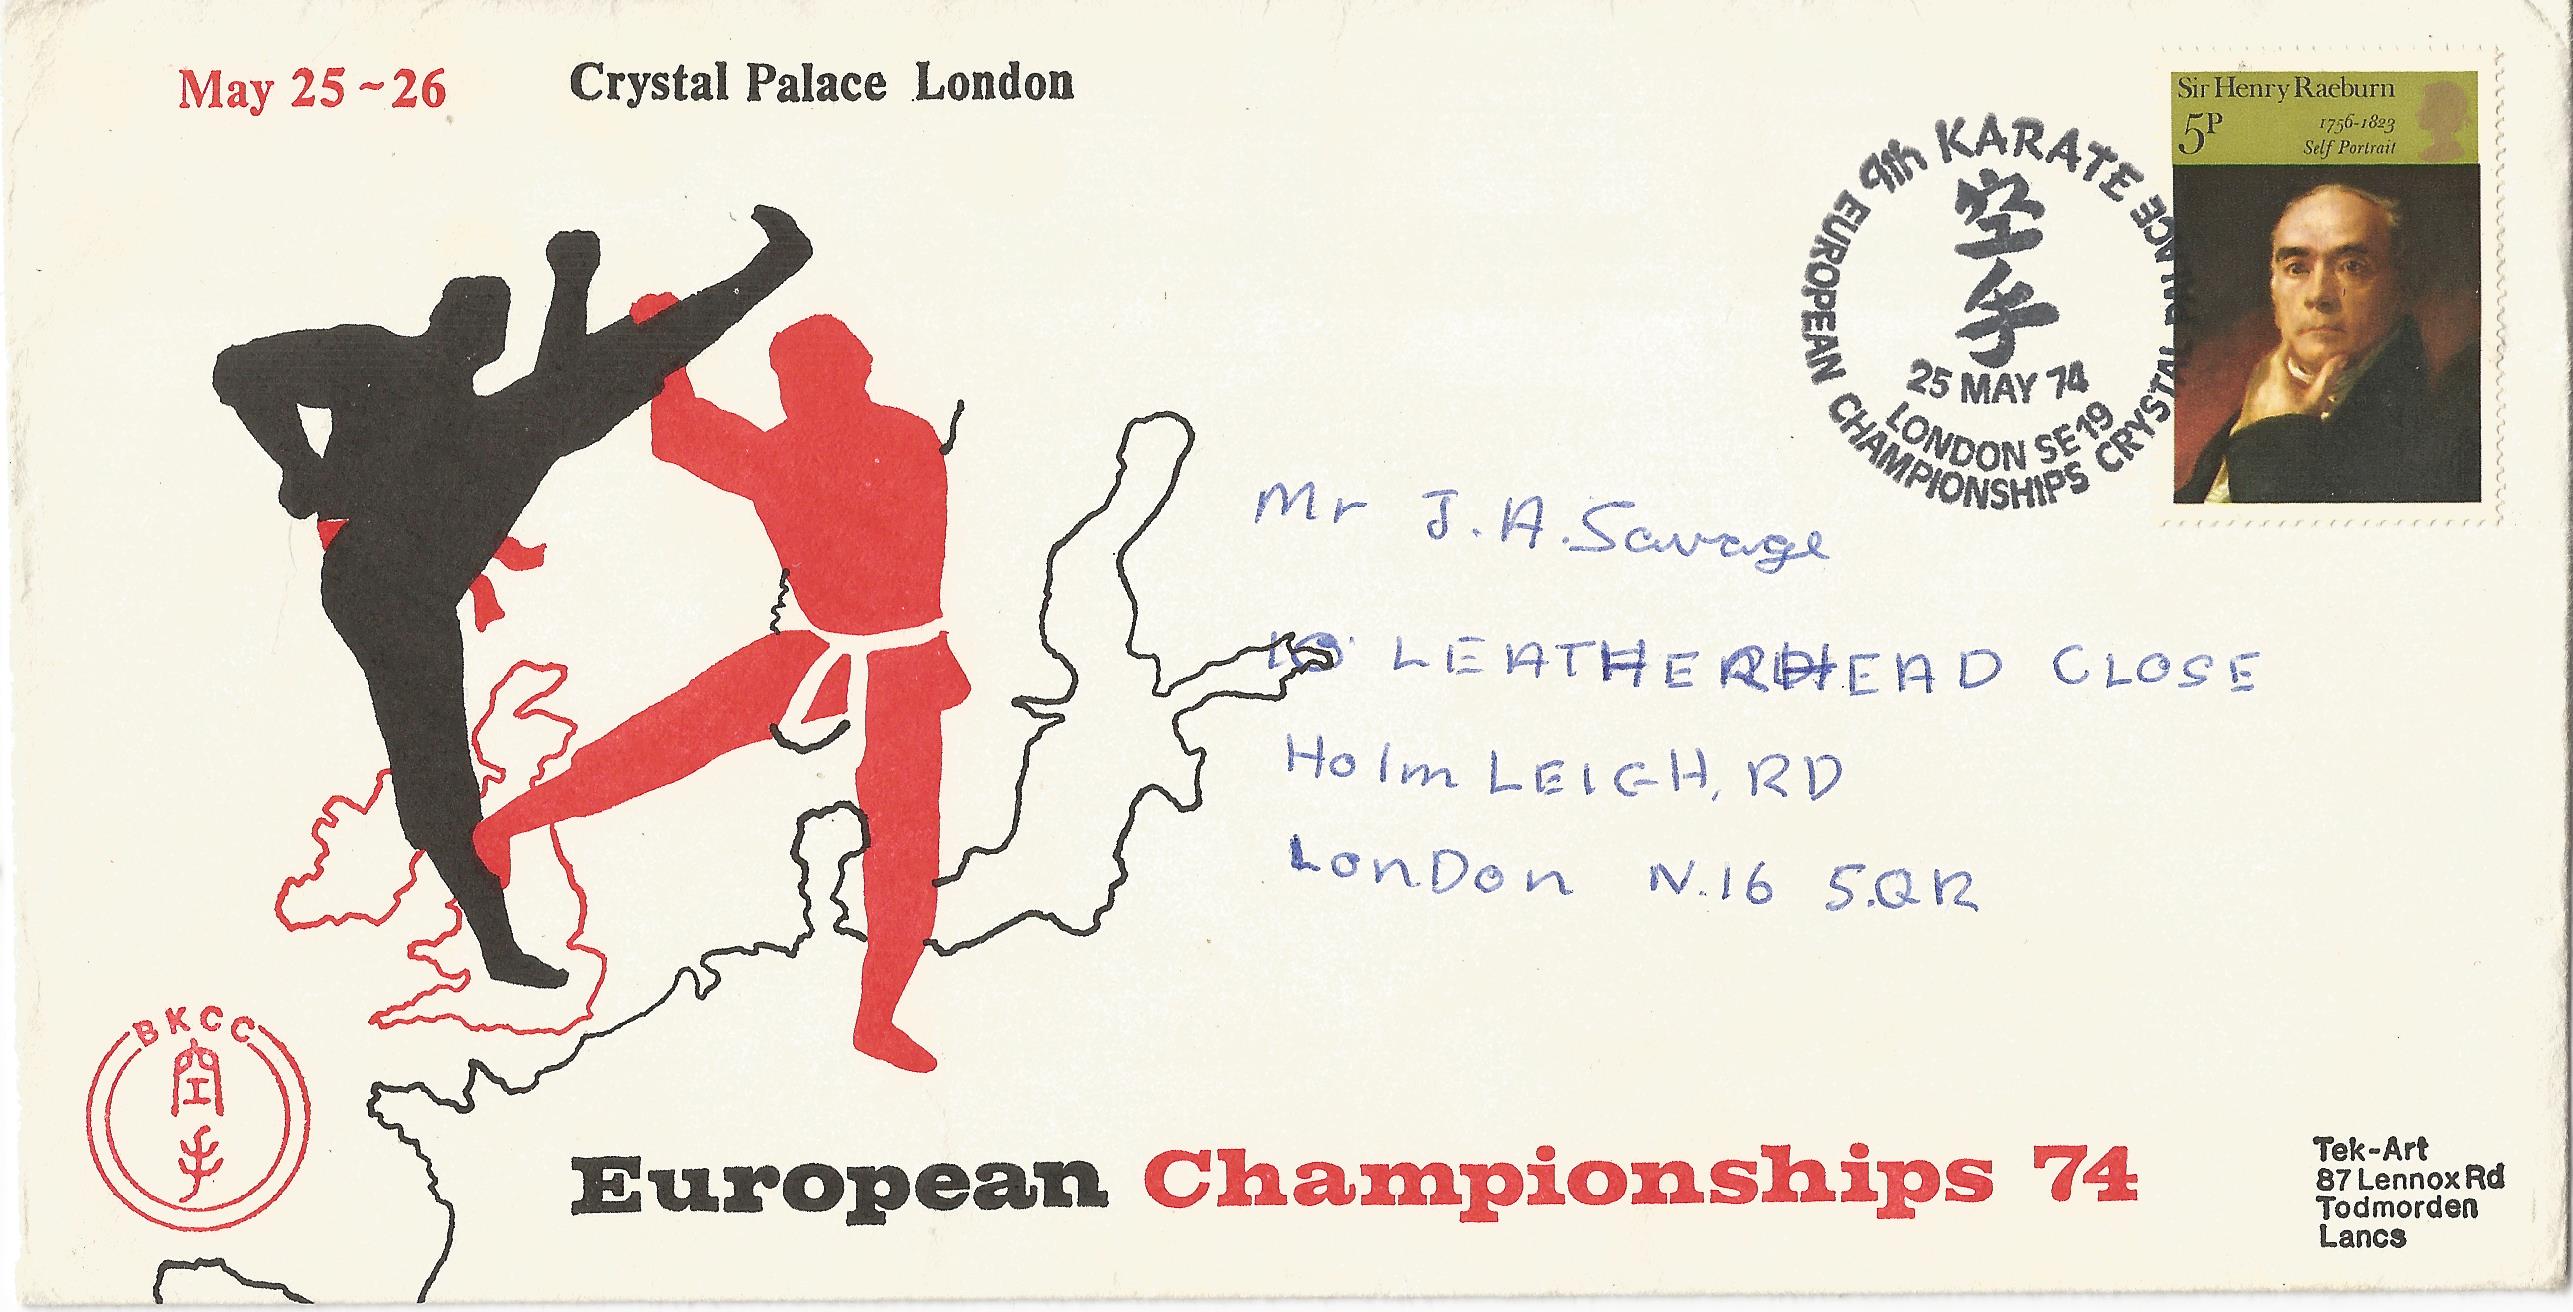 May 25~26
Crystal Palace London
Sir Henry Raeburn
5P
1756-1823
Self Portrait
9th KARATE
EUROPEAN CHAMPIONSHIPS CRYSTAL PALACE
空
手
25 MAY 74
LONDON SE19
Mr J.A.Savage
LEATHERHEAD CLOSE
Holm LEIGH, RD
LonDon N.16 5.QR
BKCC
空
手
European Championships 74
Tek-Art
87 Lennox Rd
Todmorden
Lancs